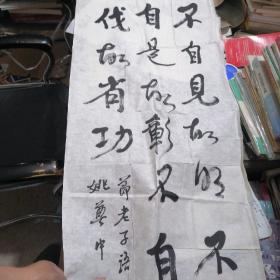 不自見故明不
自是故彰不自
伐故有功
節老子語
姚奠中